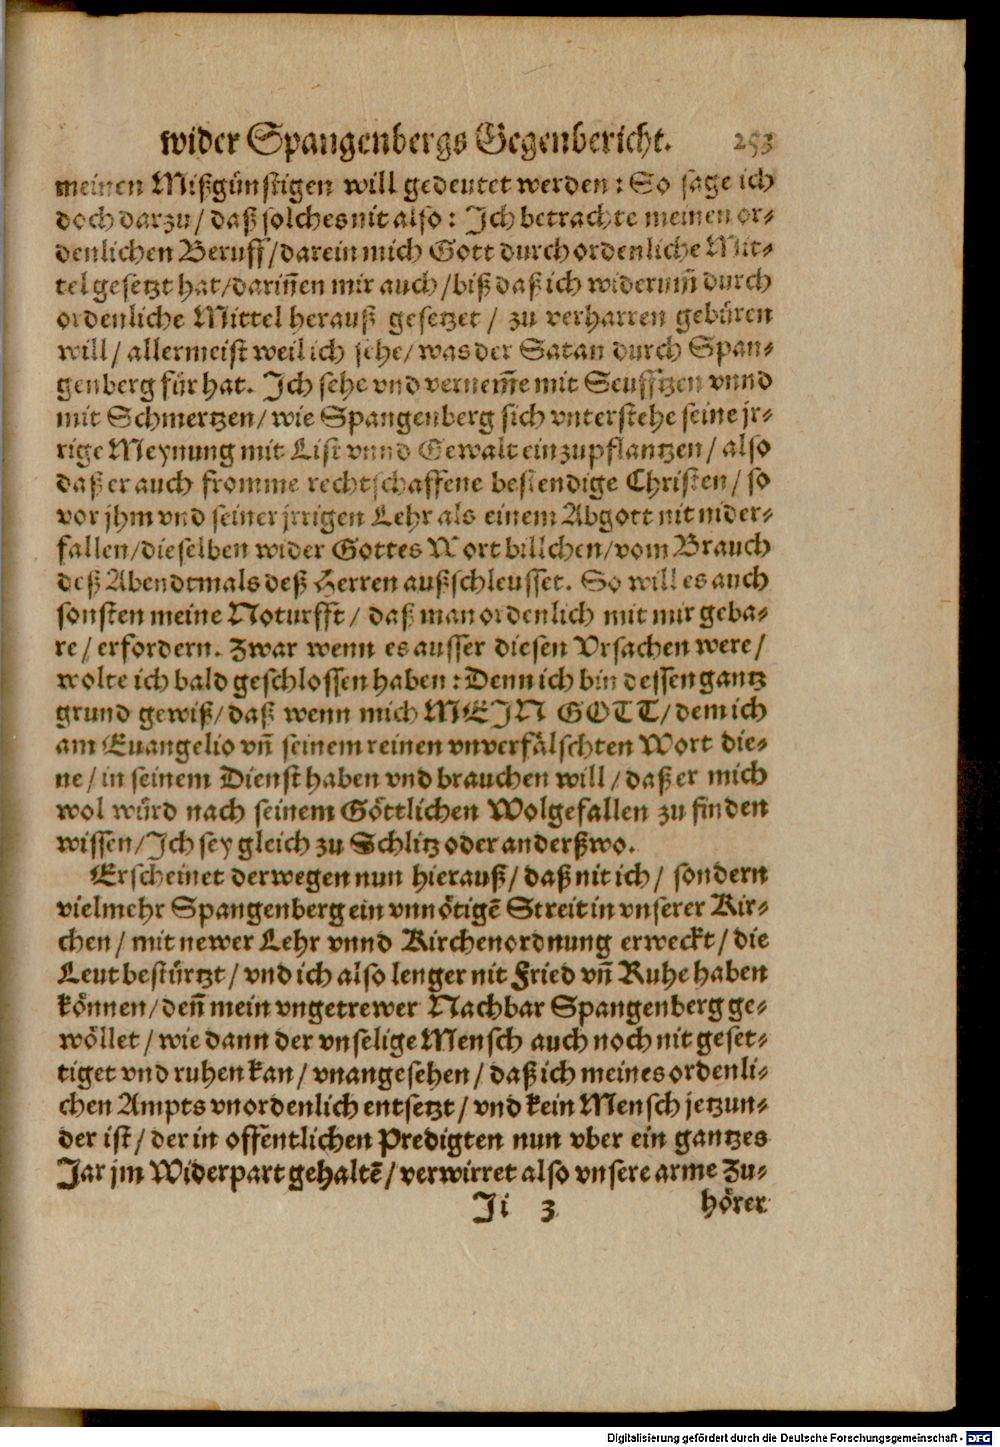 wider Spangenbergs Gegenbericht. 253
meinen Mißgünstigen will gedeutet werden: So sage ich
doch darzu / daß solches nit also: Ich betrachte meinen or-
denlichen Beruff / darein mich Gott durch ordenliche Mit-
tel gesetzt hat / dariñen mir auch / biß daß ich widerum̃ durch
ordenliche Mittel herauß gesetzet / zu verharren gebüren
will / allermeist weil ich sehe / was der Satan durch Span-
genberg für hat. Ich sehe vnd vernem̃e mit Seufftzen vnnd
mit Schmertzen / wie Spangenberg sich vnterstehe seine jr-
rige Meynung mit List vnnd Gewalt einzupflantzen / also
daß er auch fromme rechtschaffene bestendige Christen / so
vor jhm vnd seiner jrrigen Lehr als einem Abgott nit nider-
fallen / dieselben wider Gottes Wort billchen / vom Brauch
deß Abendtmals deß Herren außschleusset. So will es auch
sonsten meine Noturfft / daß man ordenlich mit mir geba-
re / erfordern. Zwar wenn es ausser diesen Vrsachen were /
wolte ich bald geschlossen haben: Denn ich bin dessen gantz
grund gewiß / daß wenn mich MEIN GOTT / dem ich
am Euangelio vñ seinem reinen vnverfälschten Wort die-
ne / in seinem Dienst haben vnd brauchen will / daß er mich
wol würd nach seinem Göttlichen Wolgefallen zu finden
wissen / Ich sey gleich zu Schlitz oder anderßwo.
Erscheinet derwegen nun hierauß / daß nit ich / sondern
vielmehr Spangenberg ein vnnötigẽ Streit in vnserer Kir-
chen / mit newer Lehr vnnd Kirchenordnung erweckt / die
Leut bestürtzt / vnd ich also lenger nit Fried vñ Ruhe haben
können / deñ mein vngetrewer Nachbar Spangenberg ge-
wöllet / wie dann der vnselige Mensch auch noch nit geset-
tiget vnd ruhen kan / vnangesehen / daß ich meines ordenli-
chen Ampts vnordenlich entsetzt / vnd kein Mensch jetzun-
der ist / der in offentlichen Predigten nun vber ein gantzes
Jar jm Widerpart gehaltẽ / verwirret also vnsere arme Zu-
Ji 3 hörer
Digitalisierung gefördert durch die Deutsche Forschungsgemeinschaft - DFG